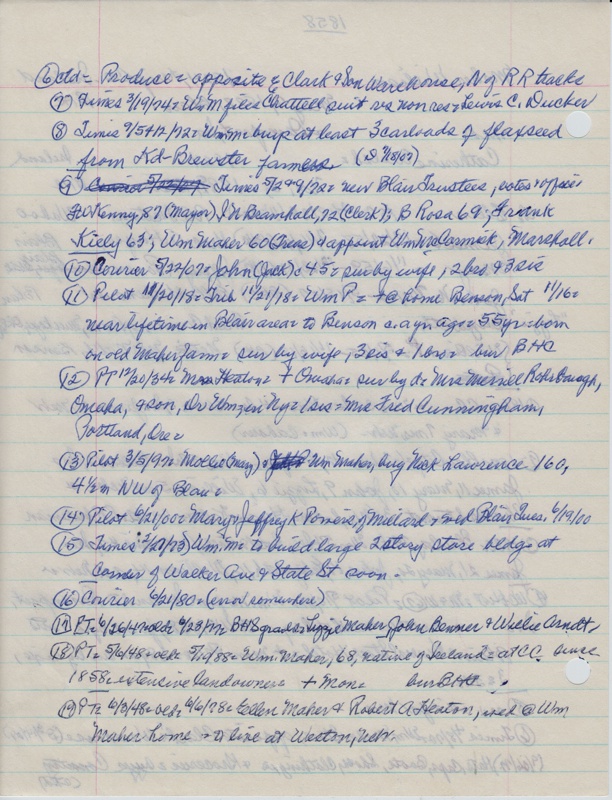 1858
⑥ ctd = Produce = opposite Clark & Son Warehouse, N of RR tracks
⑦ Times 3/19/74 = Wm M files Chattell suit vs non res = Lewis C. Ducker
⑧ Times 9/5+12/72 = Wm M = buys at least 3 carloads of flaxseed
from Kd-Brewster farmers
⑨ Courier 5/22/07 Times 5/2+9/78 = new Blair Trustees, votes + office
F O Kenny, 87 (Mayor) J N Bramhall, 72 (Clerk); B Rosa 69; Frank
Kiely 65; Wm Maher 60 (Treas) & appoint Wm McCormick, Marshall.
⑩ Courier 5/22/07 = John (Jack) = 45 = sur by wife, 2 bro & 3 sis
⑪ Pilot 11/20/18 = Trib 11/21/18 = Wm P = + @ home Benson, Sat 11/16 =
near lifetime in Blair area = to Benson c. a yr ago = 55 yr = born
on old Maher farm = sur by wife, 3 sis & 1 bro = bur BHC
⑫ PT 12/20/34 = Mrs Heaton = + Omaha = sur by d = Mrs Merrill
Omaha, & son, Dr Wm, in Ny = 1 sis = Mrs Fred Cunningham,
Portland, Ore =
⑬ Pilot 3/5/92 = Mollie (Mary) & Wm Maher, buy Nick Lawrence 160,
4½ m NW of Blair =
⑭ Pilot 6/21/00 = Mary & Jeffrey K Powers, of Millard = wed Blair Tues. 6/19/00
⑮ Times Wm. M = to build large 2 story store bldg = at
Corner of Walker Ave & State St soon.
⑯ Courier 6/21/80 = (error somewhere)
⑰ PT = 6/26/47 = BHS grads = Lizzie Maher, John Benner & Willie Arndt,
⑱ PT = 5/6/48 = Wm. Maher, 68, native of Ireland = at CC since
1858 = extensive landowner = + Mon = bur BHC.
⑲ PT = 6/3/48 = 6/6/78 = Ellen Maher & Robert A Heaton, wed @ Wm
Maher home = to live at Weston, Nebr